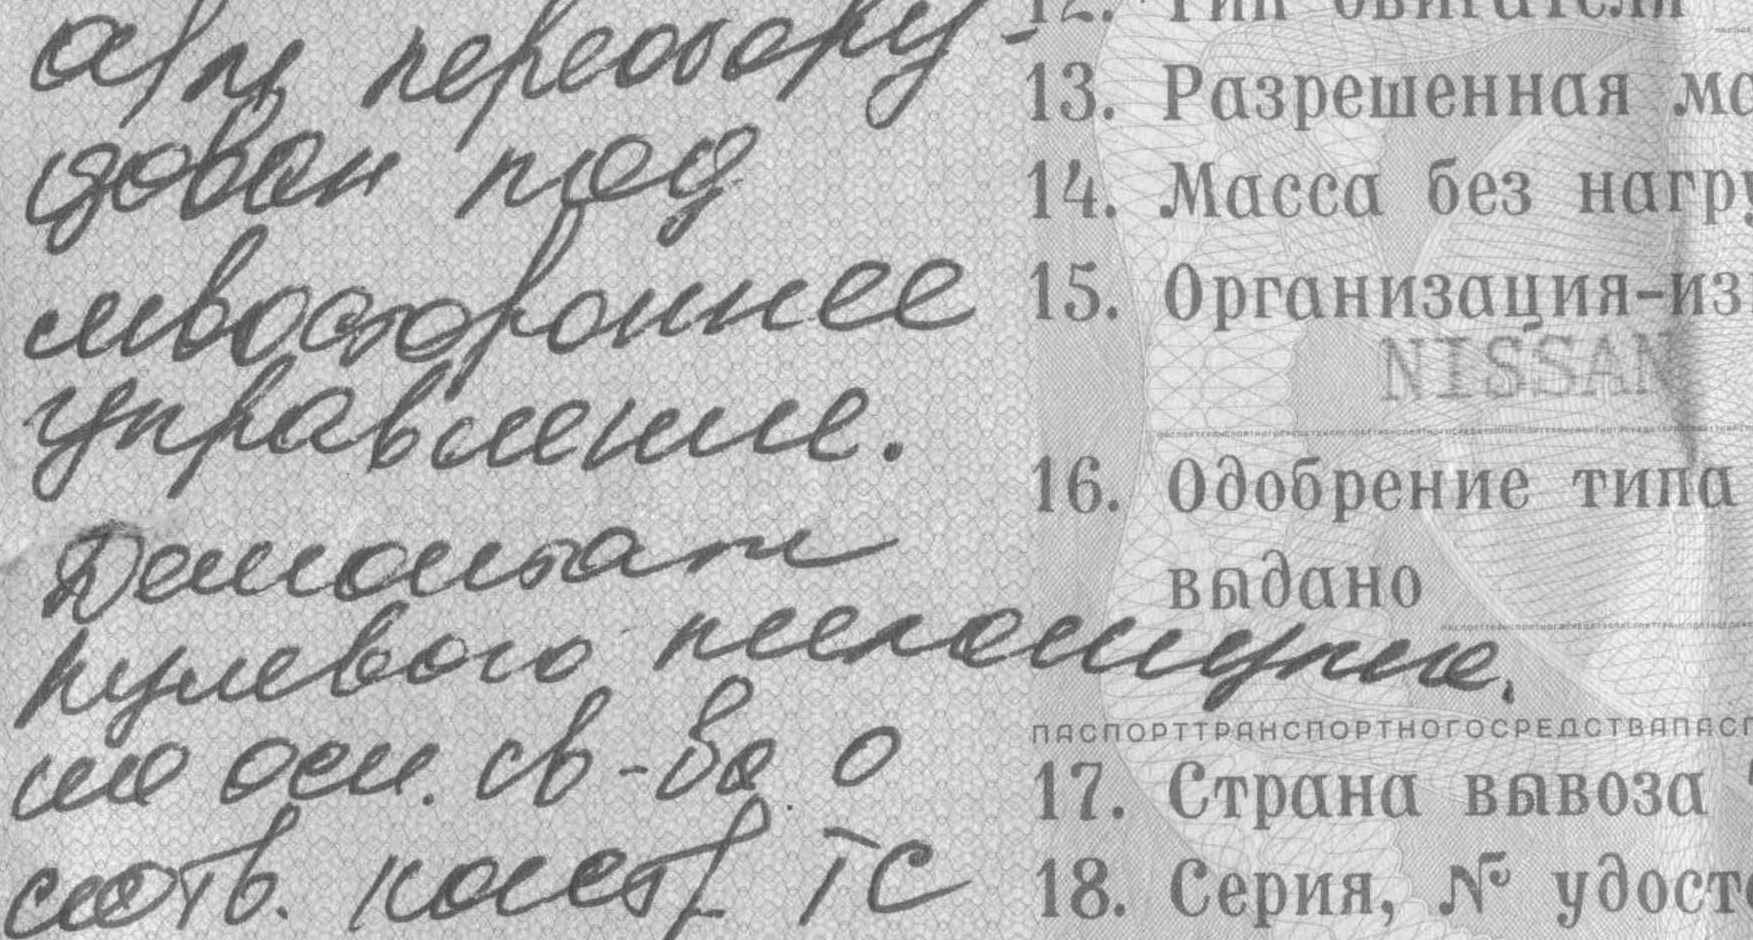 а/м переобору-
дован под
левостороннее
управление.
Демонтаж
рулевого
на осн. св-ва о
соотв. констр. ТС
12. Тип двигателя
13. Разрешенная ма
14. Масса без нагру
15. Организация-из
NISSAN
16. Одобрение типа
выдано
ПАСПОРТТРАНСПОРТНОГОСРЕДСТВАПАСП
17. Страна вывоза
18. Серия, № удосто